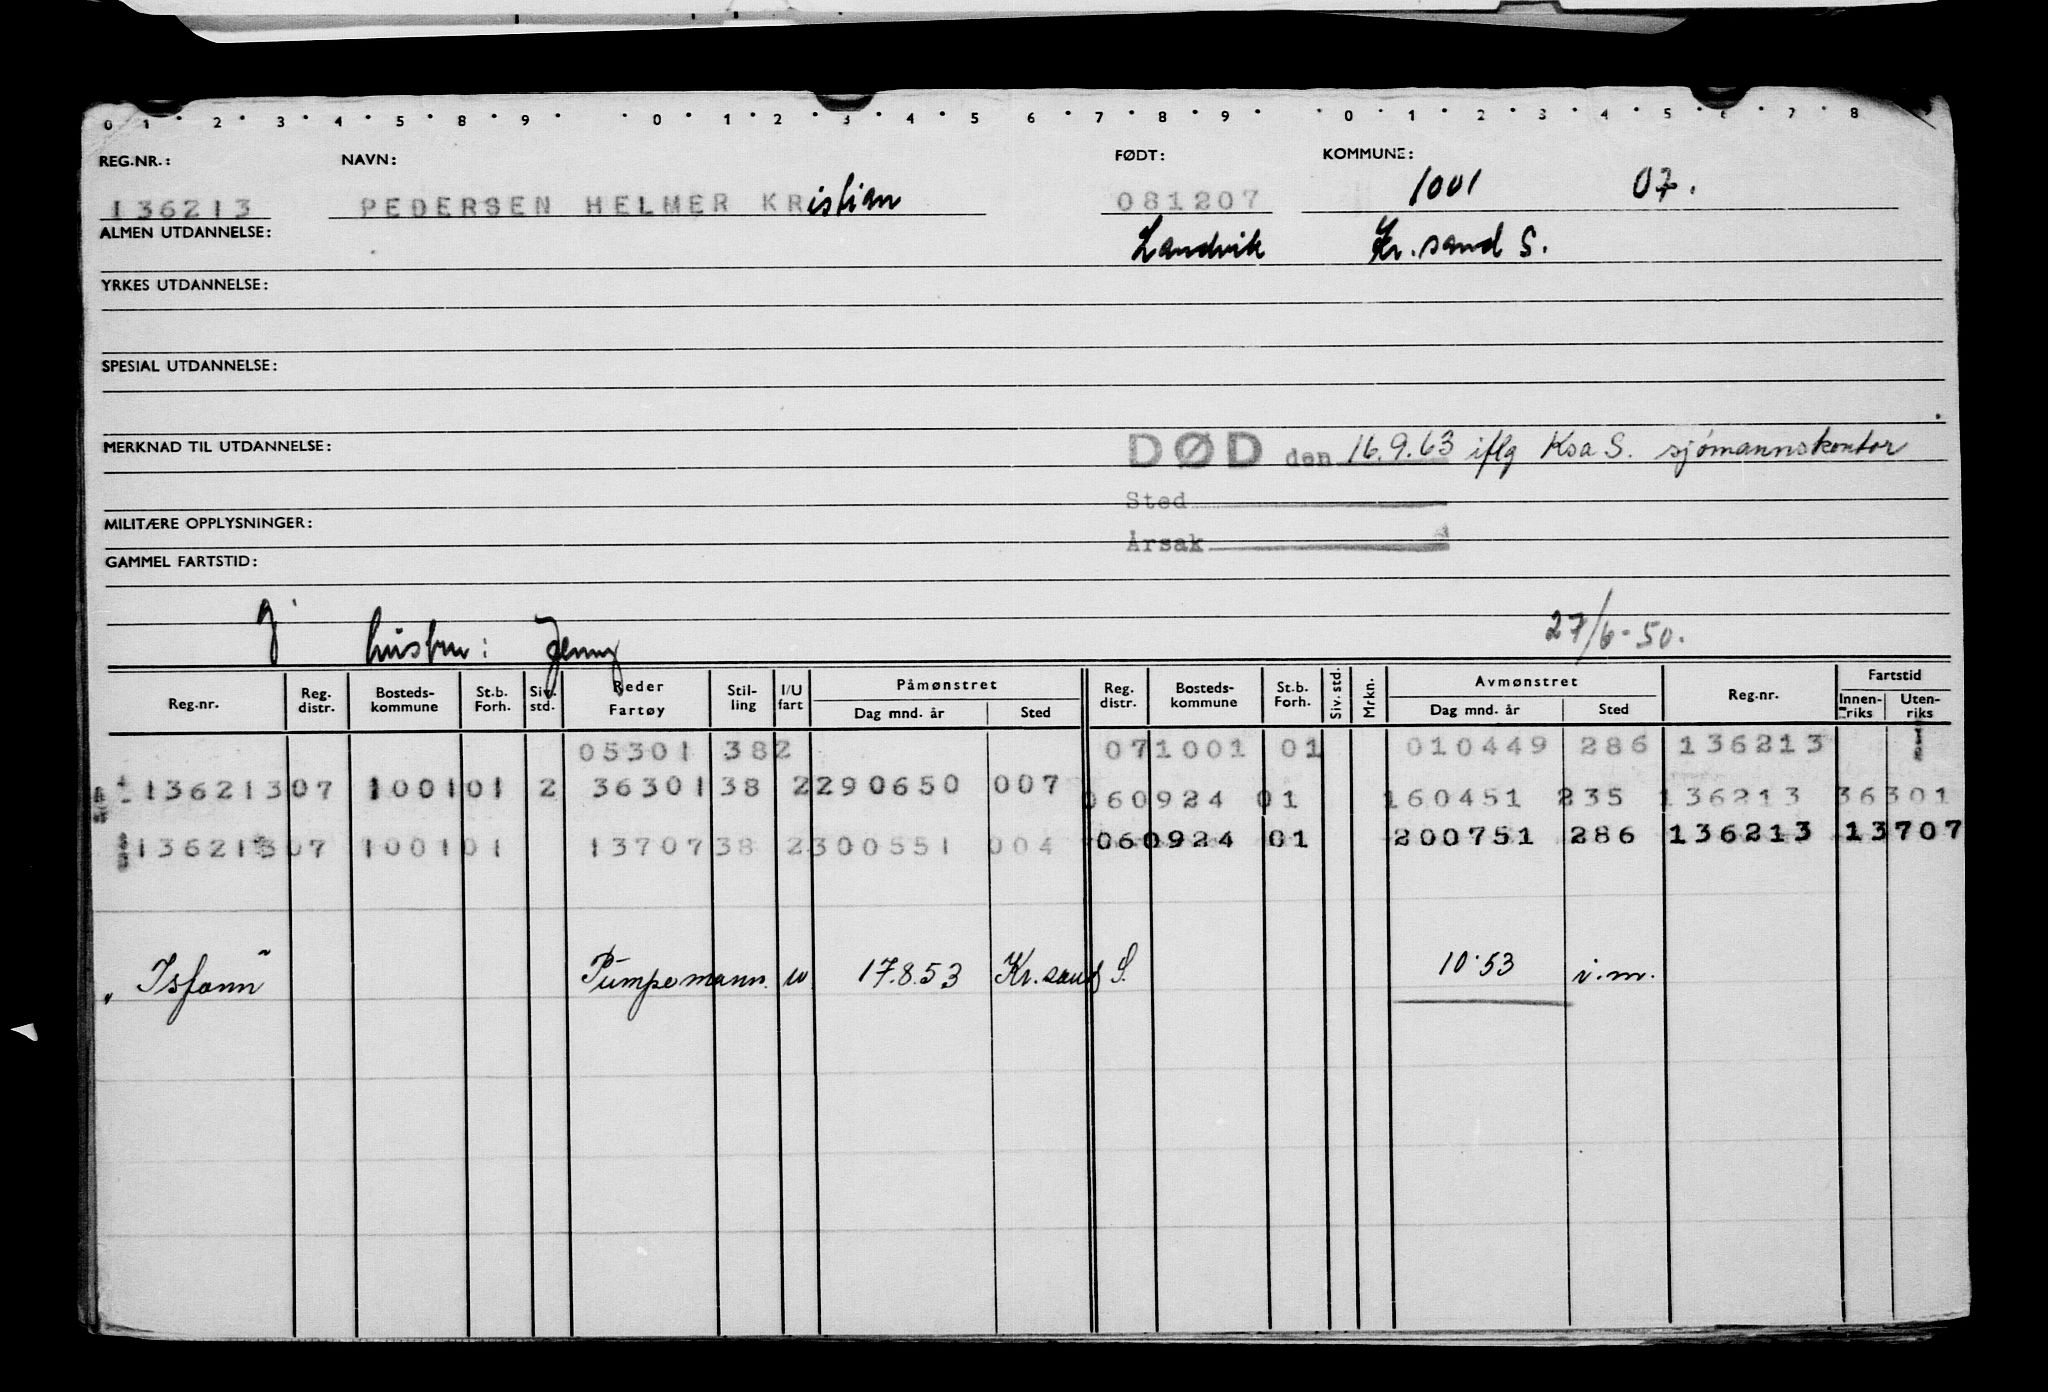 0 1 2 3 4 5 8 9 0 1 2 3 4 5 6 7 8 9 0 1 2 3 4 5 6 7 8
REG.NR.: NAVN: FØDT: KOMMUNE:
136213 PEDERSEN HELMER KRistian 081207 1001 07.
ALMEN UTDANNELSE: Landvik Kr. sand S.
YRKES UTDANNELSE:
SPESIAL UTDANNELSE:
MERKNAD TIL UTDANNELSE: DØD den 16.9.63 iflg Ksa S. sjømannskontor
Sted
MILITÆRE OPPLYSNINGER:
Årsak
GAMMEL FARTSTID:
g hustru: Jenny 27/6-50.
Reg.nr. Reg. distr. Bosteds-kommune St.b. Forh. Siv. std. Reder Fartøy Stil-ling I/U fart Påmønstret Dag mnd. år Sted Reg. distr. Bosteds-kommune St.b. Forh. Siv. std. Mrkn. Avmønstret Dag mnd. år Sted Reg.nr. Fartstid Innen-riks Uten-riks
05301 382 071001 01 010449 286 136213
13621307 100101 2 36301 38 2290650 007 060924 01 160451 235 136213 36301
13621307 100101 13707 38 2300551 004 060924 01 200751 286 136213 13707
"Isfonn" Pumpemann u 17.8.53 Kr.sand S. 10.53 i.m.